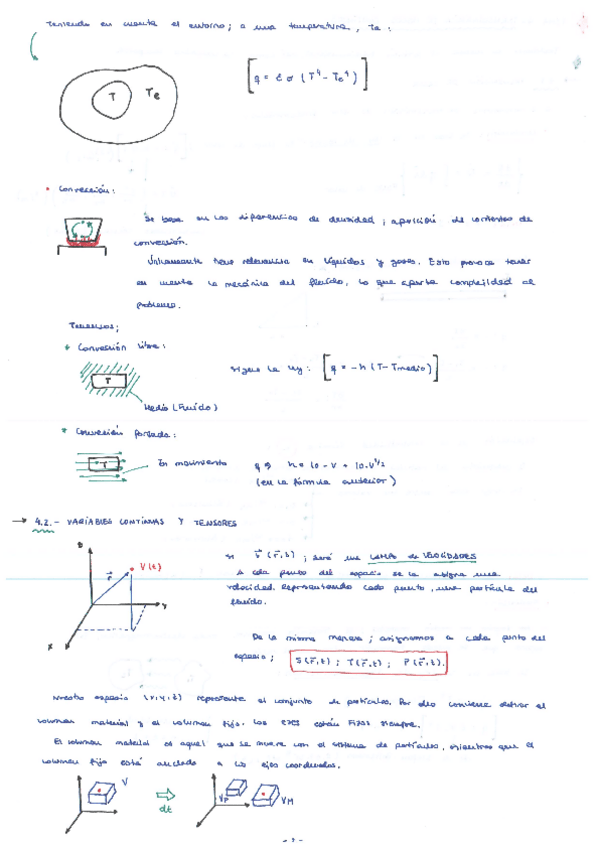 Teniendo en cuenta el entorno; a una temperatura, Te:
T Te
q = ε σ (T⁴ - Te⁴)
• Convección:
Se basa en las diferencias de densidad; aparición de corrientes de
convección.
Únicamente tiene relevancia en líquidos y gases. Esto provoca tener
en cuenta la mecánica del fluido, lo que aporta complejidad al
problema.
Tenemos;
* Convección libre:
T
Medio (Fluido)
sigue la ley: [q = -h (T - Tmedio)]
* Convección forzada:
T
En movimiento
q ⇒ h = 10 - V + 10·V^1/2
(en la fórmula anterior)
→ 4.2.- VARIABLES CONTINUAS Y TENSORES
V(t)
r
Y
X
Si v (r, t); será un CAMPO de VELOCIDADES
A cada punto del espacio se le asigna una
velocidad. Representando cada punto, una partícula del
fluido.
De la misma manera; asignamos a cada punto del
espacio; S(r,t); T(r,t); P(r,t).
Nuestro espacio representa el conjunto de partículas. Por ello conviene definir el
volumen material y el volumen fijo. Los EJES están FIJOS siempre.
El volumen material es aquel que se mueve con el sistema de partículas, mientras que el
volumen fijo está anclado a los ejes coordenados.
V
dt
VF
VM